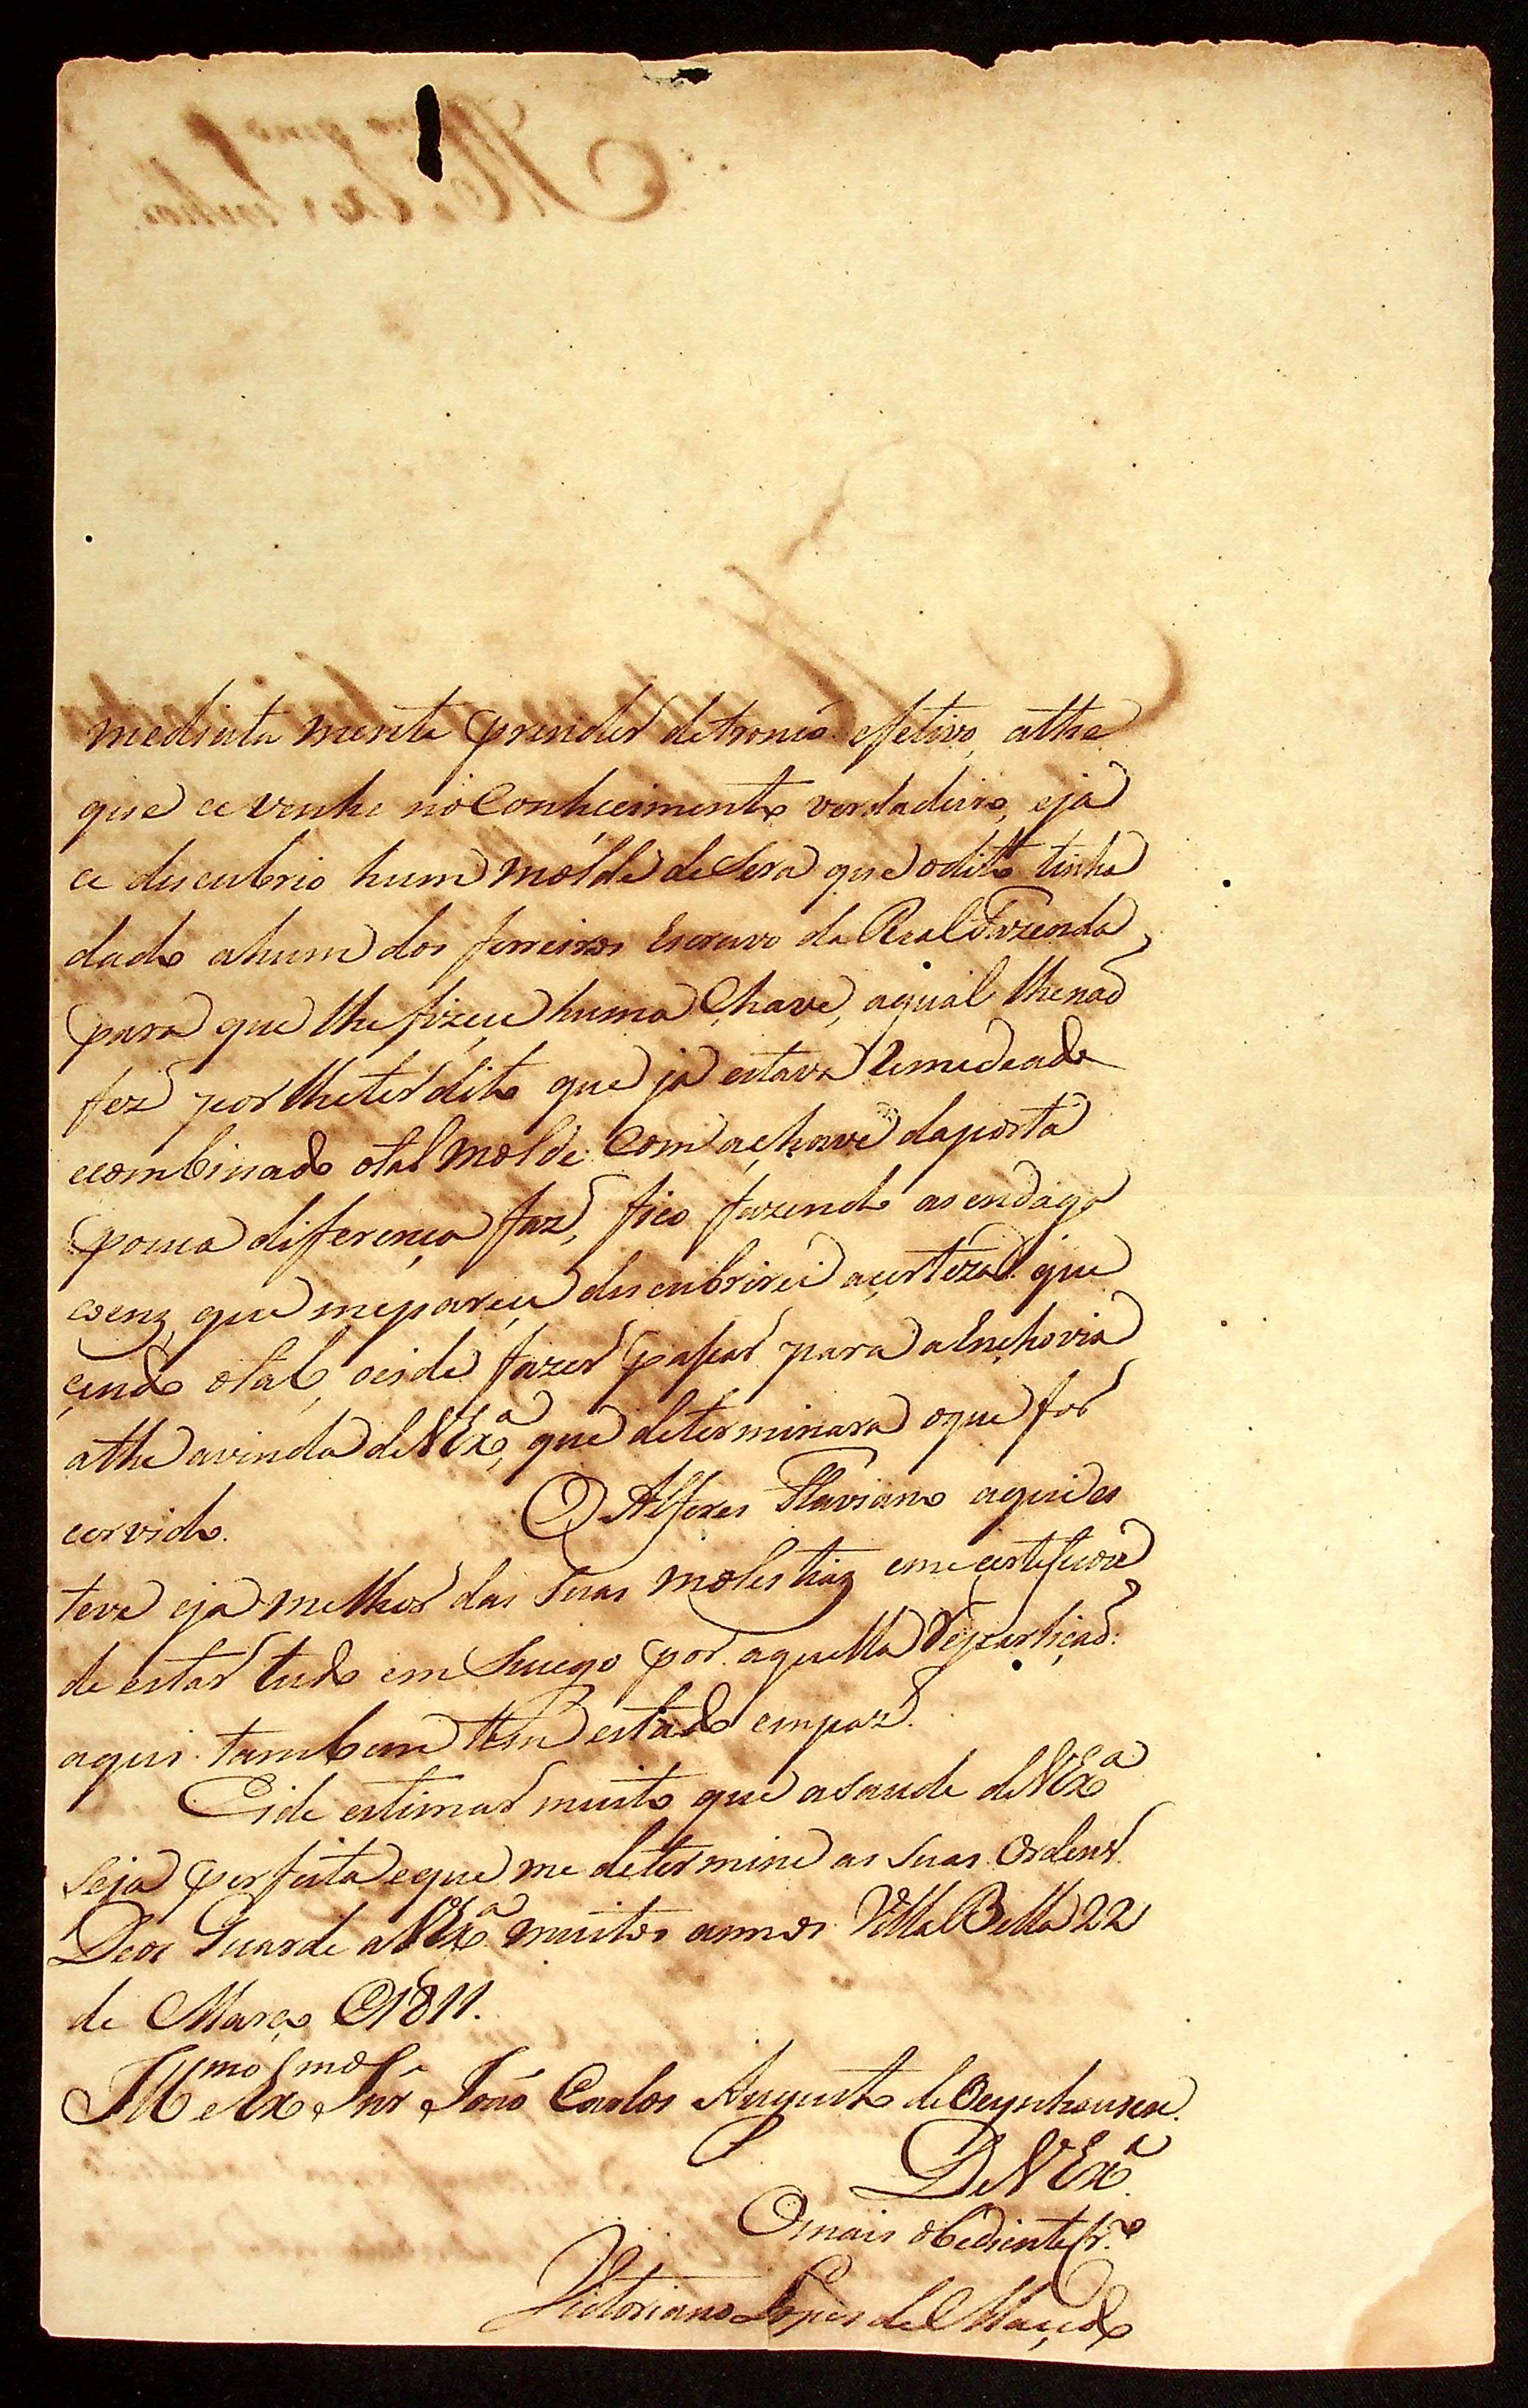 mediata mente prender de tronco efetivo, athe
que ce venha no Conhecimento verdadeiro, eja
ce descubrio hum mólde de Sera que odito tinha
dado ahum dos ferreiros Escravo da Real Fazenda
para que lhe fizece huma Chave, aqual lhenaõ
fez por lheter dito que já estava Remedeado
ecombinado otal molde Com achave daporta
pouca diferença faz, fico fazendo as endaga
coenz, que meparece descubrirei acerteza que
çendo otal, oeide fazer paçar para aEnchovia
athe avinda deVExª, que determinara oque for
cervido. O Alferes Flaviano aqui es
teve eja melhor das Suas molestiaz eme certeficou
de estar tudo em Sucego por aquella Repartiçaõ:
aqui tambem tem estado empaz.
Eide estimar muito que aSaude deVExª
Seja perfeita eque me determine as Suas Ordens.
Deos Guarde aVExª muitos annos Villa Bella 22
de Março 1811.
Illmo eExmo Snr João Carlos Augusto deOeynhausen.
DeVExª
Omais obediente
Victoriano Lopes de Maçedo